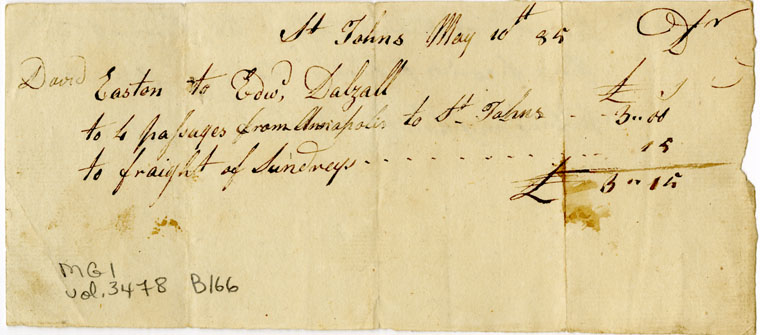 St Johns May 10th 85 Dr
David Easton to Edwd, Dalzall £ s
to 4 passages from Annapolis to St Johns - - 3 " 00
to fraight of Sundreys - - - - - - - - - - - 15
£ 3 " 15
MG1
vol. 3478 B166